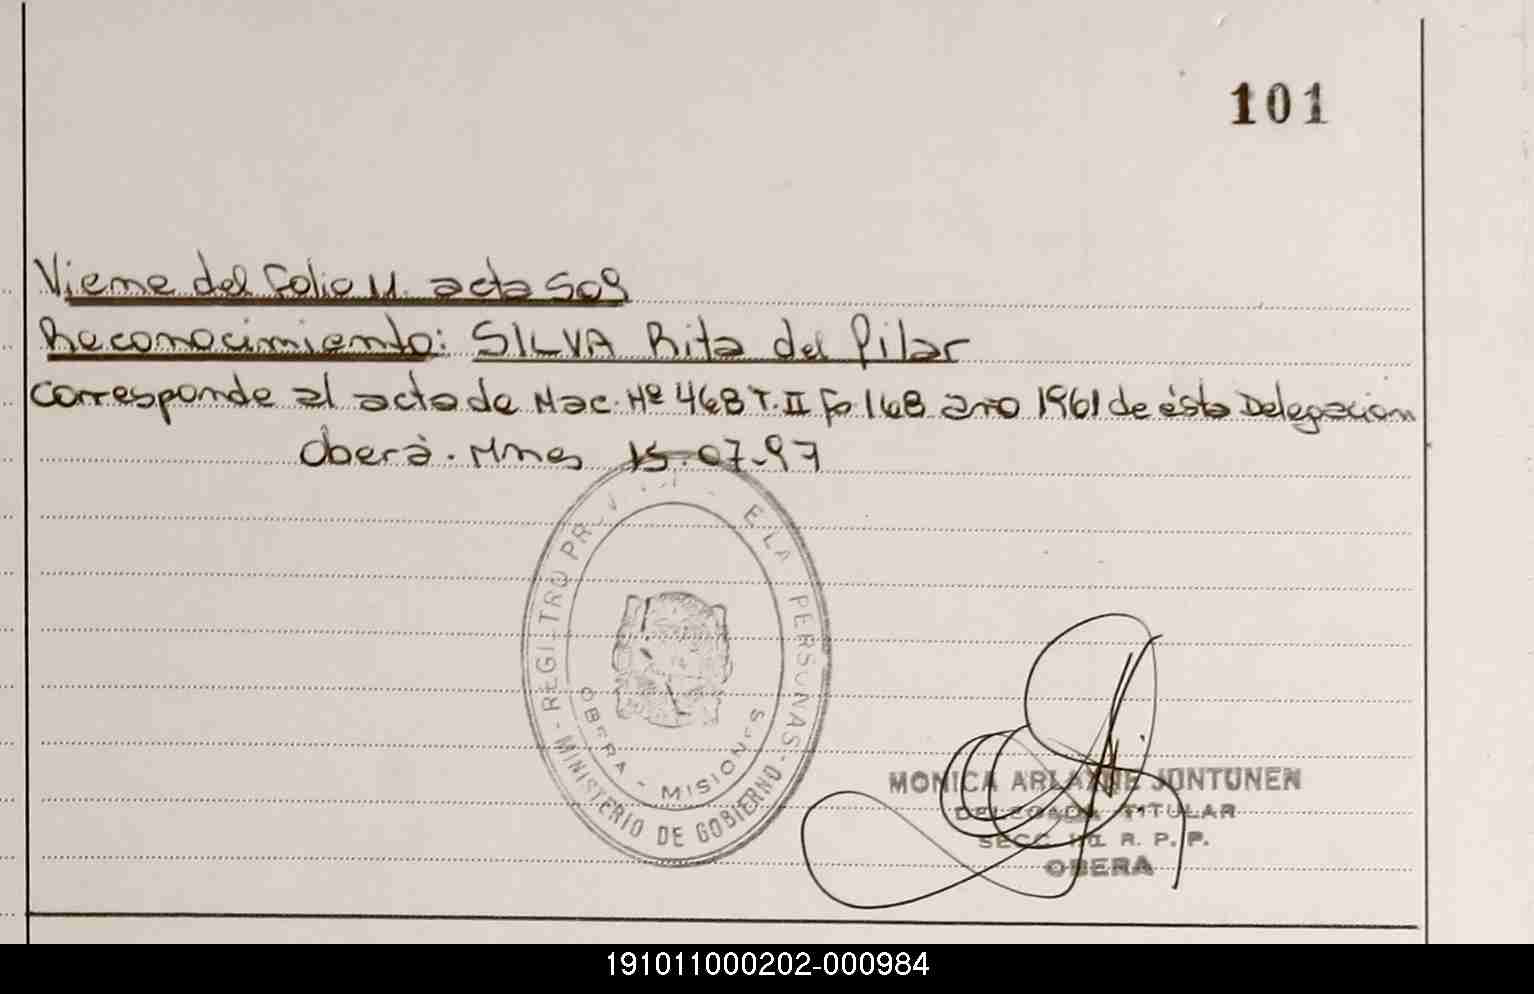 101
Viene del folio 11. acta 509
Reconocimiento: SILVA Rita del Pilar
Corresponde al acta de Nac. Nº 468 T. II fo 168 año 1961 de ésta Delegacion
Oberà. Mnes 15-07-97
REGISTRO PROV E LA PERSONAS
MINISTERIO DE GOBIERNO
OBERA - MISIONES
MONICA ARIANNE JONTUNEN
DELEGADA TITULAR
SECC. R. P. P.
OBERA
191011000202-000984